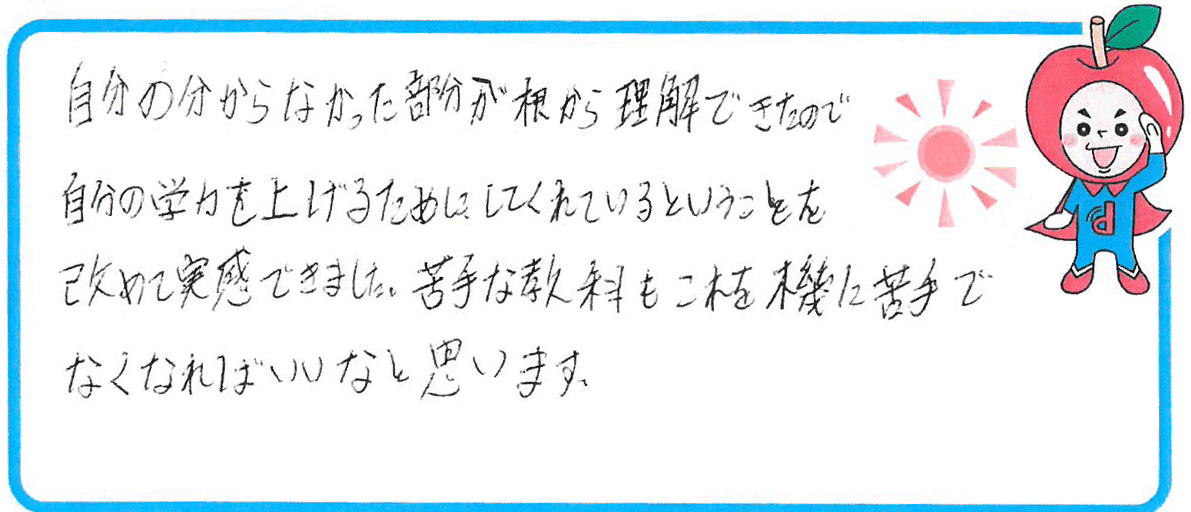 自分の分からなかった部分が根から理解できたので
自分の学力を上げるためにしてくれているということを
改めて実感できました。苦手な教科もこれを機に苦手で
なくなればいいなと思います。
d